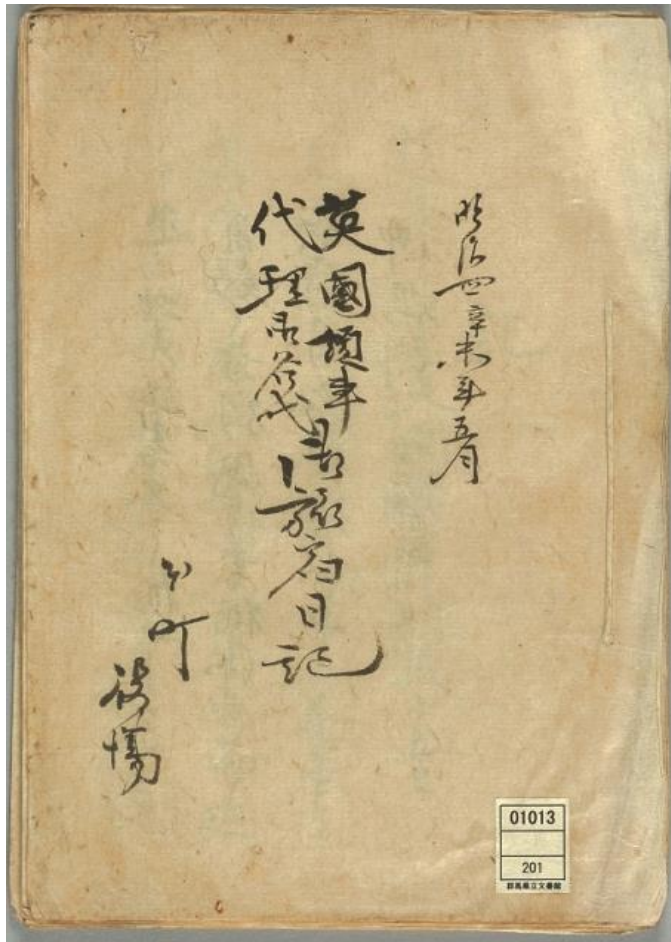 明治四辛未年五月
英國領事
代理
旅宿日記
本町
役場
01013
201
群馬県立文書館